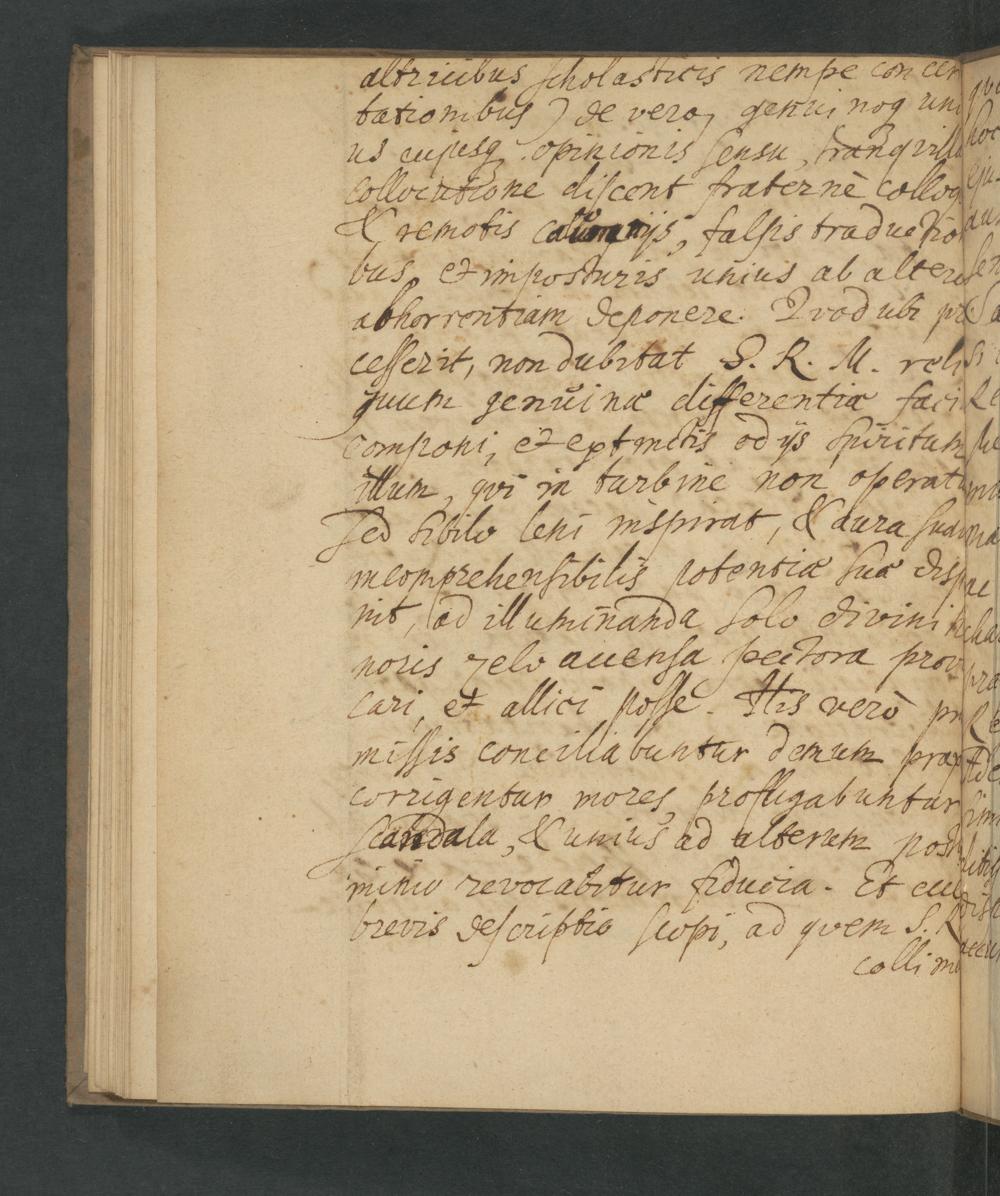 altricibus scholasticis nempe concer
tationibus) de vero, genuinoq uni
us cujusq opinionis sensu, tranqvilla
collocutione discent fraternè colloq
& remotis calumnijs, falsis traductio
bus, et imposturis unius ab altero
abhorrentiam deponere. Qvod ubi pro
cesserit, non dubitat S. R. M. reli
quum genuinæ differentiæ faci
componi, et extinctis odijs spiritum
illum, qvi in turbine non operatu
sed sibilo leni inspirat, & aura sua
incomprehensibilis potentiæ suæ disp
nit, ad illuminanda solo divini
noris zelo accensa pectora provo
cari, et allici posse. His verò præ
missis conciliabuntur demum prax
corrigentur mores profligabuntur
scandala, & unius ad alterum post
minio revocabitur fiducia. Et
brevis descriptio scopi, ad qvem S. R
collim